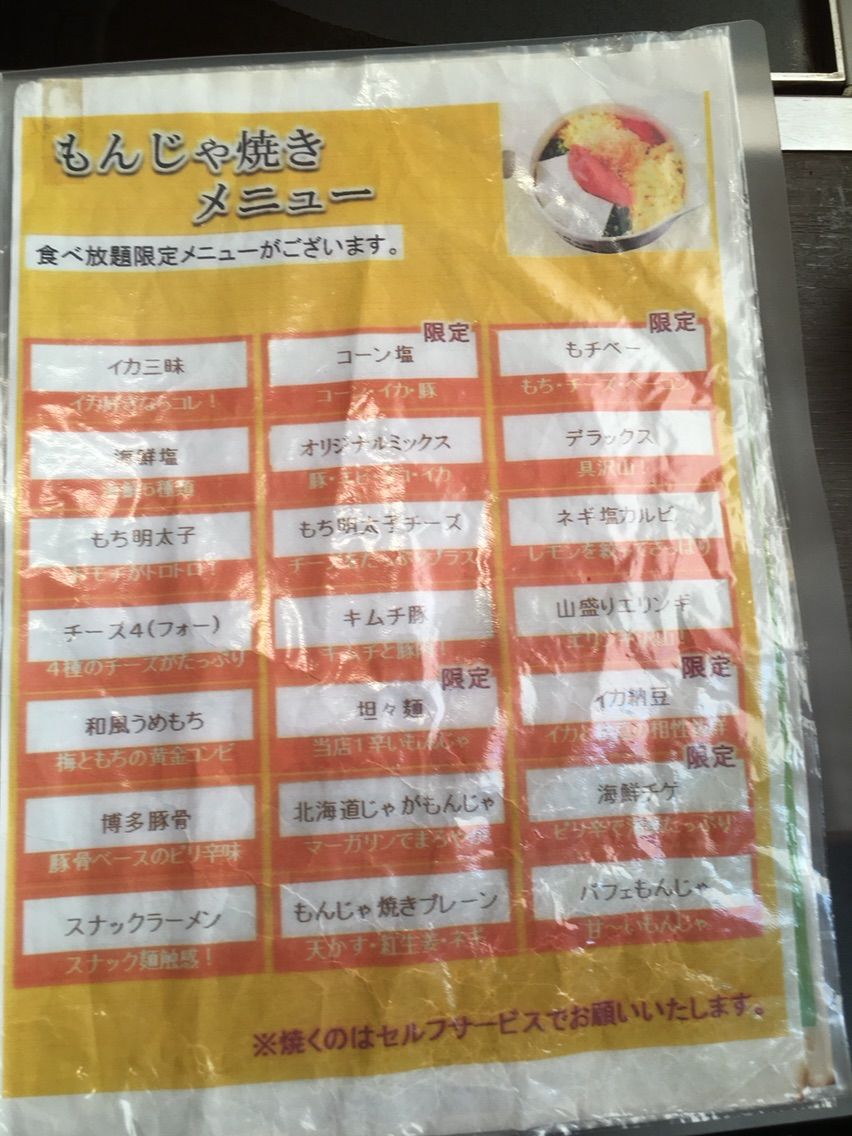 もんじゃ焼き
メニュー
食べ放題限定メニューがございます。
イカ三昧
イカ好きならコレ！
限定
コーン塩
コーン・イカ・豚
限定
もチベー
もち・チーズ・ベーコン
海鮮塩
5種類
オリジナルミックス
豚・エビ・タコ・イカ
デラックス
具沢山！
もち明太子
おモチがトロトロ！
もち明太子チーズ
チーズをたっぷりプラス
ネギ塩カルビ
レモンを絞ってさっぱり
チーズ4(フォー)
4種のチーズがたっぷり
キムチ豚
キムチと豚肉！
山盛りエリンギ
和風うめもち
梅ともちの黄金コンビ
限定
坦々麺
当店1辛いもんじゃ
限定
イカ納豆
博多豚骨
豚骨ベースのピリ辛味
北海道じゃがもんじゃ
マーガリンでまろやか
限定
海鮮チゲ
ピリ辛で海鮮たっぷり
スナックラーメン
スナック麺触感！
もんじゃ焼きプレーン
天かす・紅生姜・ネギ
パフェもんじゃ
甘〜いもんじゃ
※焼くのはセルフサービスでお願いいたします。